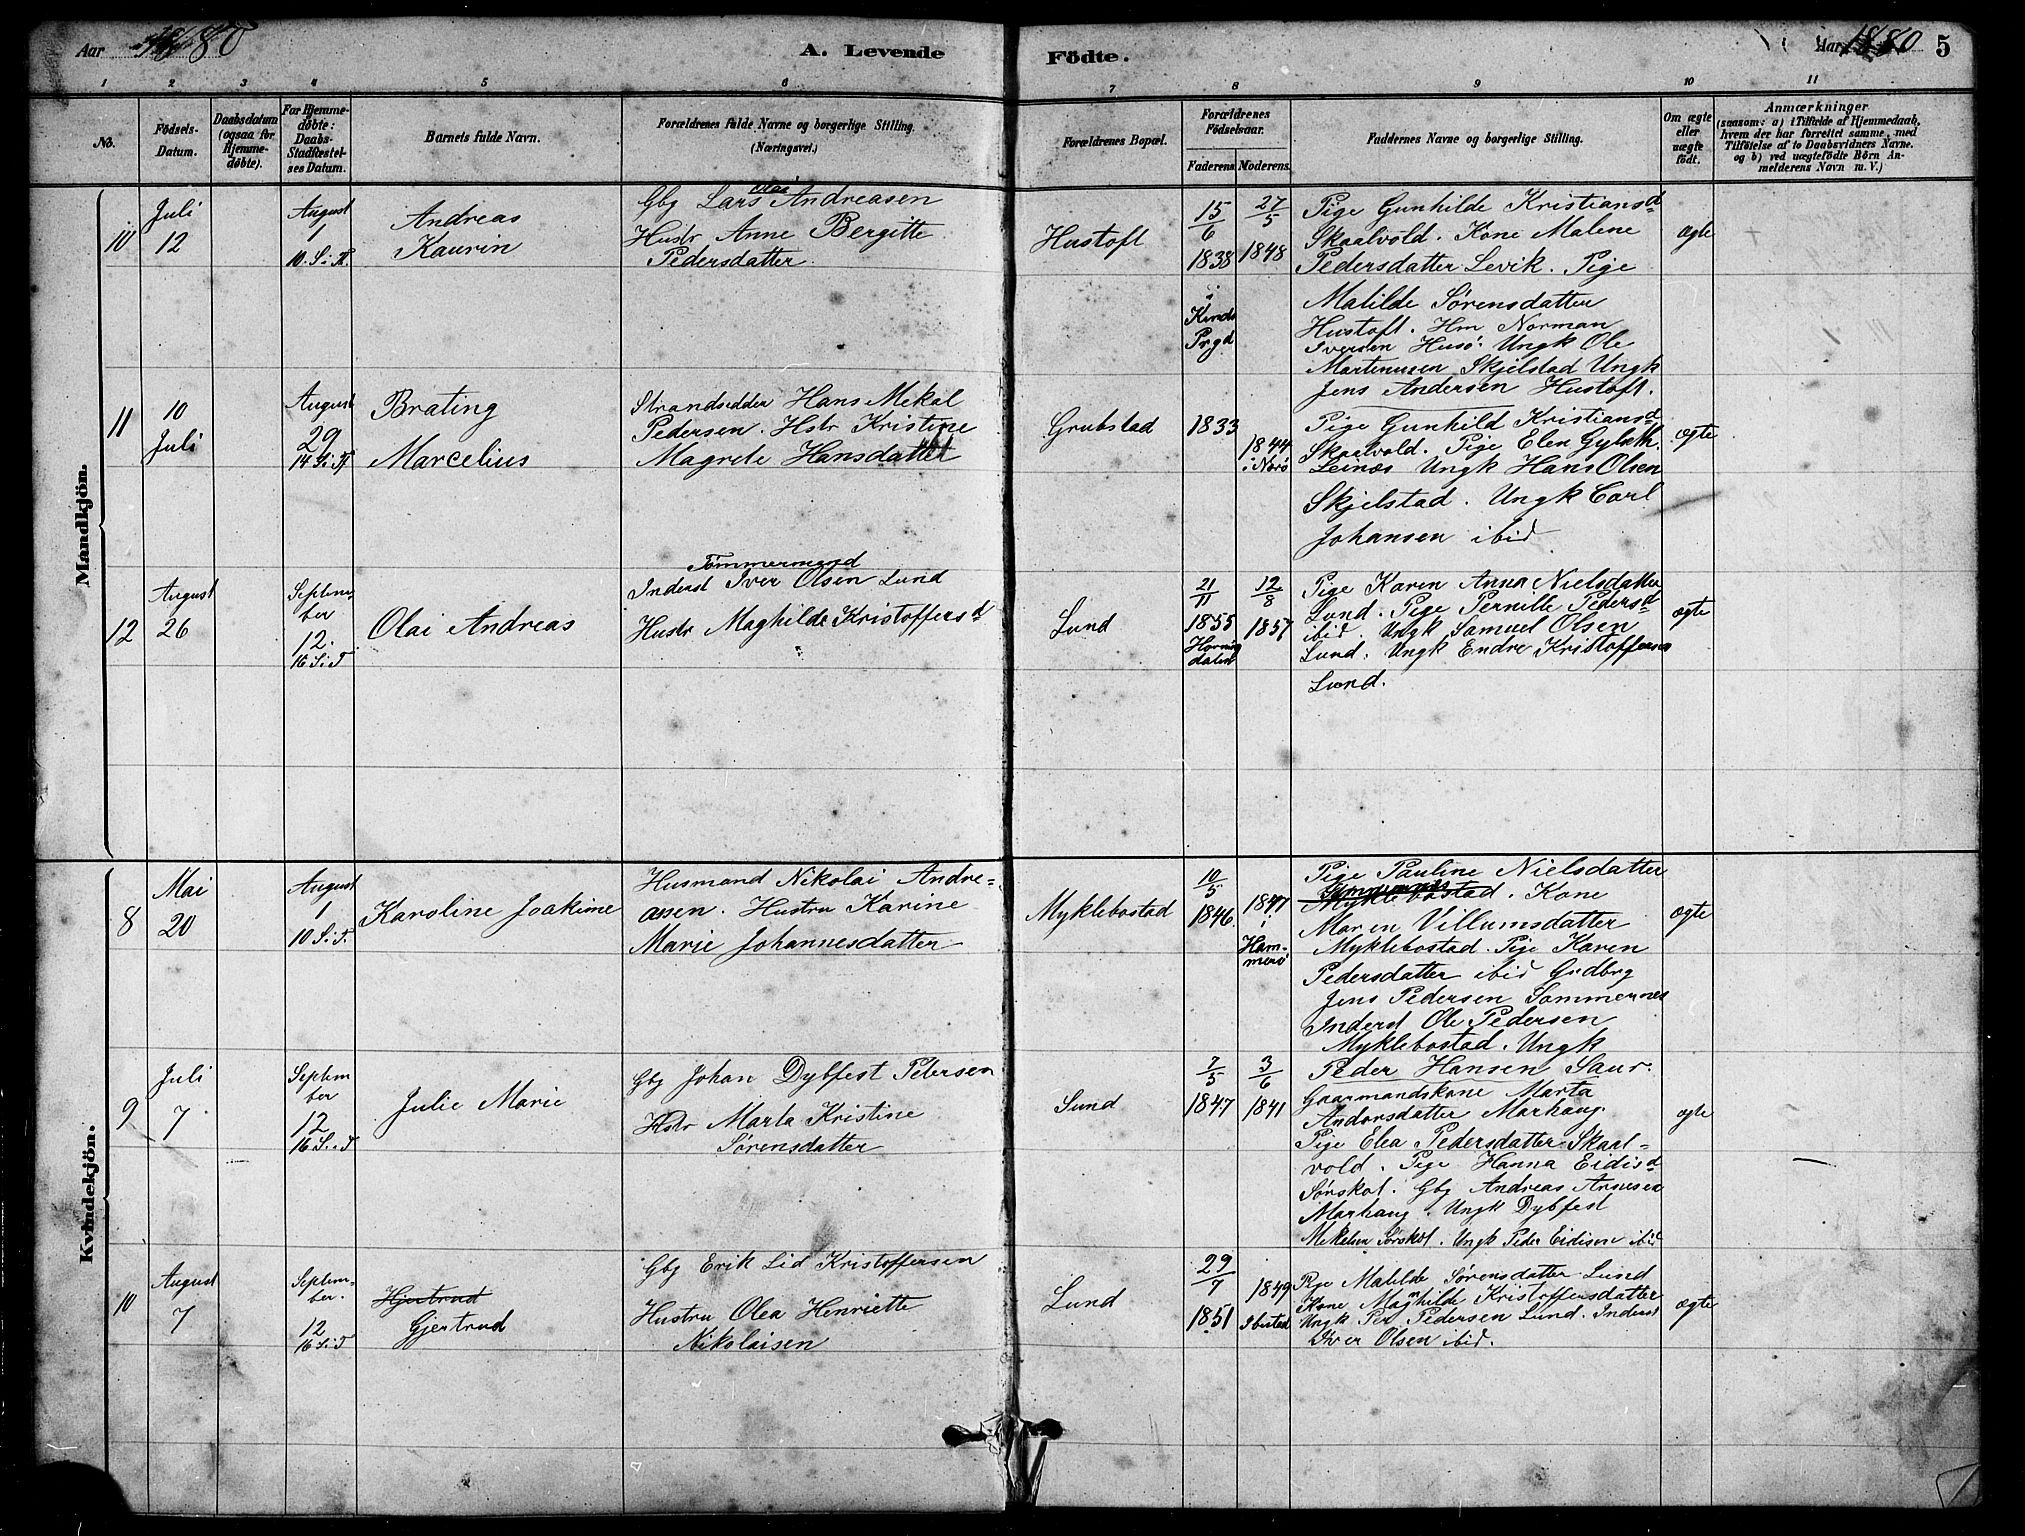 Aar 1880
A. Levende
Födte.
Aar 1880
5
1 2 3 4 5 6 7 8 9 10 11
No.
Födsels-
Datum.
Daabsdatum
(ogsaa for
Hjemme-
døbte).
For Hjemme-
døbte:
Daabs-
Stadfæstel-
ses Datum.
Barnets fulde Navn.
Forældrenes fulde Navne og borgerlige Stilling.
(Næringsvei.)
Forældrenes Bopæl.
Forældrenes
Födselsaar.
Faderens
Moderens.
Faddernes Navne og borgerlige Stilling.
Om ægte
eller
uægte
født.
Anmærkninger
(saasom: a) i Tilfælde af Hjemmedaab,
hvem der har forrettet samme, med
Tilføielse af to Daabsvidners Navne.
og b) ved uægtefödte Börn An-
melderens Navn m. V.)
Mandkjön.
10
Juli
12
August
1
10. S. i T.
Andreas
Kaurin
Olai
Gbg Lars Andreasen
Hustr Anne Bergitte
Pedersdatter.
Hustoft
15
6
1838
i
Kinds
Prgd
27
5
1848
Pige Gunhilde Kristiansd
Skaalvold. Kone Malene
Pedersdatter Levik. Pige
Matilde Sørensdatter
Hustoft. Hm Norman
Iversen Husö. Ungk Ole
Martinusen Skjelstad Ungk
Jens Andersen Hustoft.
ægte
11
10
Juli
August
29
14 S. i T.
Brating
Marcelius
Strandsidder Hans Mekal
Pedersen. Hstr Kristine
Magrete Hansdatter
Grubstad
1833
1844
i Norö
Pige Gunhild Kristiansd
Skaalvold. Pige Elen
Leinæs Ungk Hans Olsen
Skjelstad. Ungk Carl
Johansen ibid
ægte
12
August
26
Septem-
ber
12.
16 S. i T
Olai Andreas
Tømmermand
Inderst Iver Olsen Lund
Hustr Maghilde Kristoffersd
Lund
21
11
1855
12
8
1857
Pige Karen Anna Nielsdatter
Lund. Pige Pernille Pedersd
ibid. Ungk Samuel Olsen
Lund. Ungk Endre Kristoffersen
Lund.
ægte
Kvindekjön.
8
Mai
20
August
1
10 S. i T.
Karoline Joakime
Husmand Nikolai Andre-
asen. Hustru Karine
Marie Johannesdatter
Myklebostad
10
5
1846
1847
i
Ham-
merö
Pige Pauline Nielsdatter
Sommernes
Myklebostad. Kone
Maren Villumsdatter
Myklebostad. Pige Karen
Pedersdatter ibid Grdbrg
Jens Pedersen Sommernes
Inderst Ole Pedersen
Myklebostad. Ungk
Peder Hansen Saur.
ægte
9
Juli
7
Septem
ber
12
16 S. i T
Julie Marie
Gbg Johan Dybfest Petersen
Hstr Marta Kristine
Sørensdatter
Lund
7
5
1847
3
6
1841
Gaarmandskone Marta
Andorsdatter Marhaug.
Pige Elea Pedersdatter Skaal-
vold. Pige Hanna Eidisd
Sørskot. Gbg Andreas Arnesen
Marhaug. Ungk Dybfest
Mekelsen Sørskot. Ungk Peder Eidisen ibid
ægte
10
August
7
Septem-
ber.
12
16 S. i T
Hjertrud
Gjertrud
Gbg Erik Lid Kristoffersen
Hustru Olea Henriette
Nikolaisen
Lund
29
7
1851
1849
Ibestad
Pige Matilde Sørensdatter Lund
Kone Maghilde Kristoffersdatter
Ungk Per Pedersen Lund. Inderst
Iver Olsen ibid.
ægte